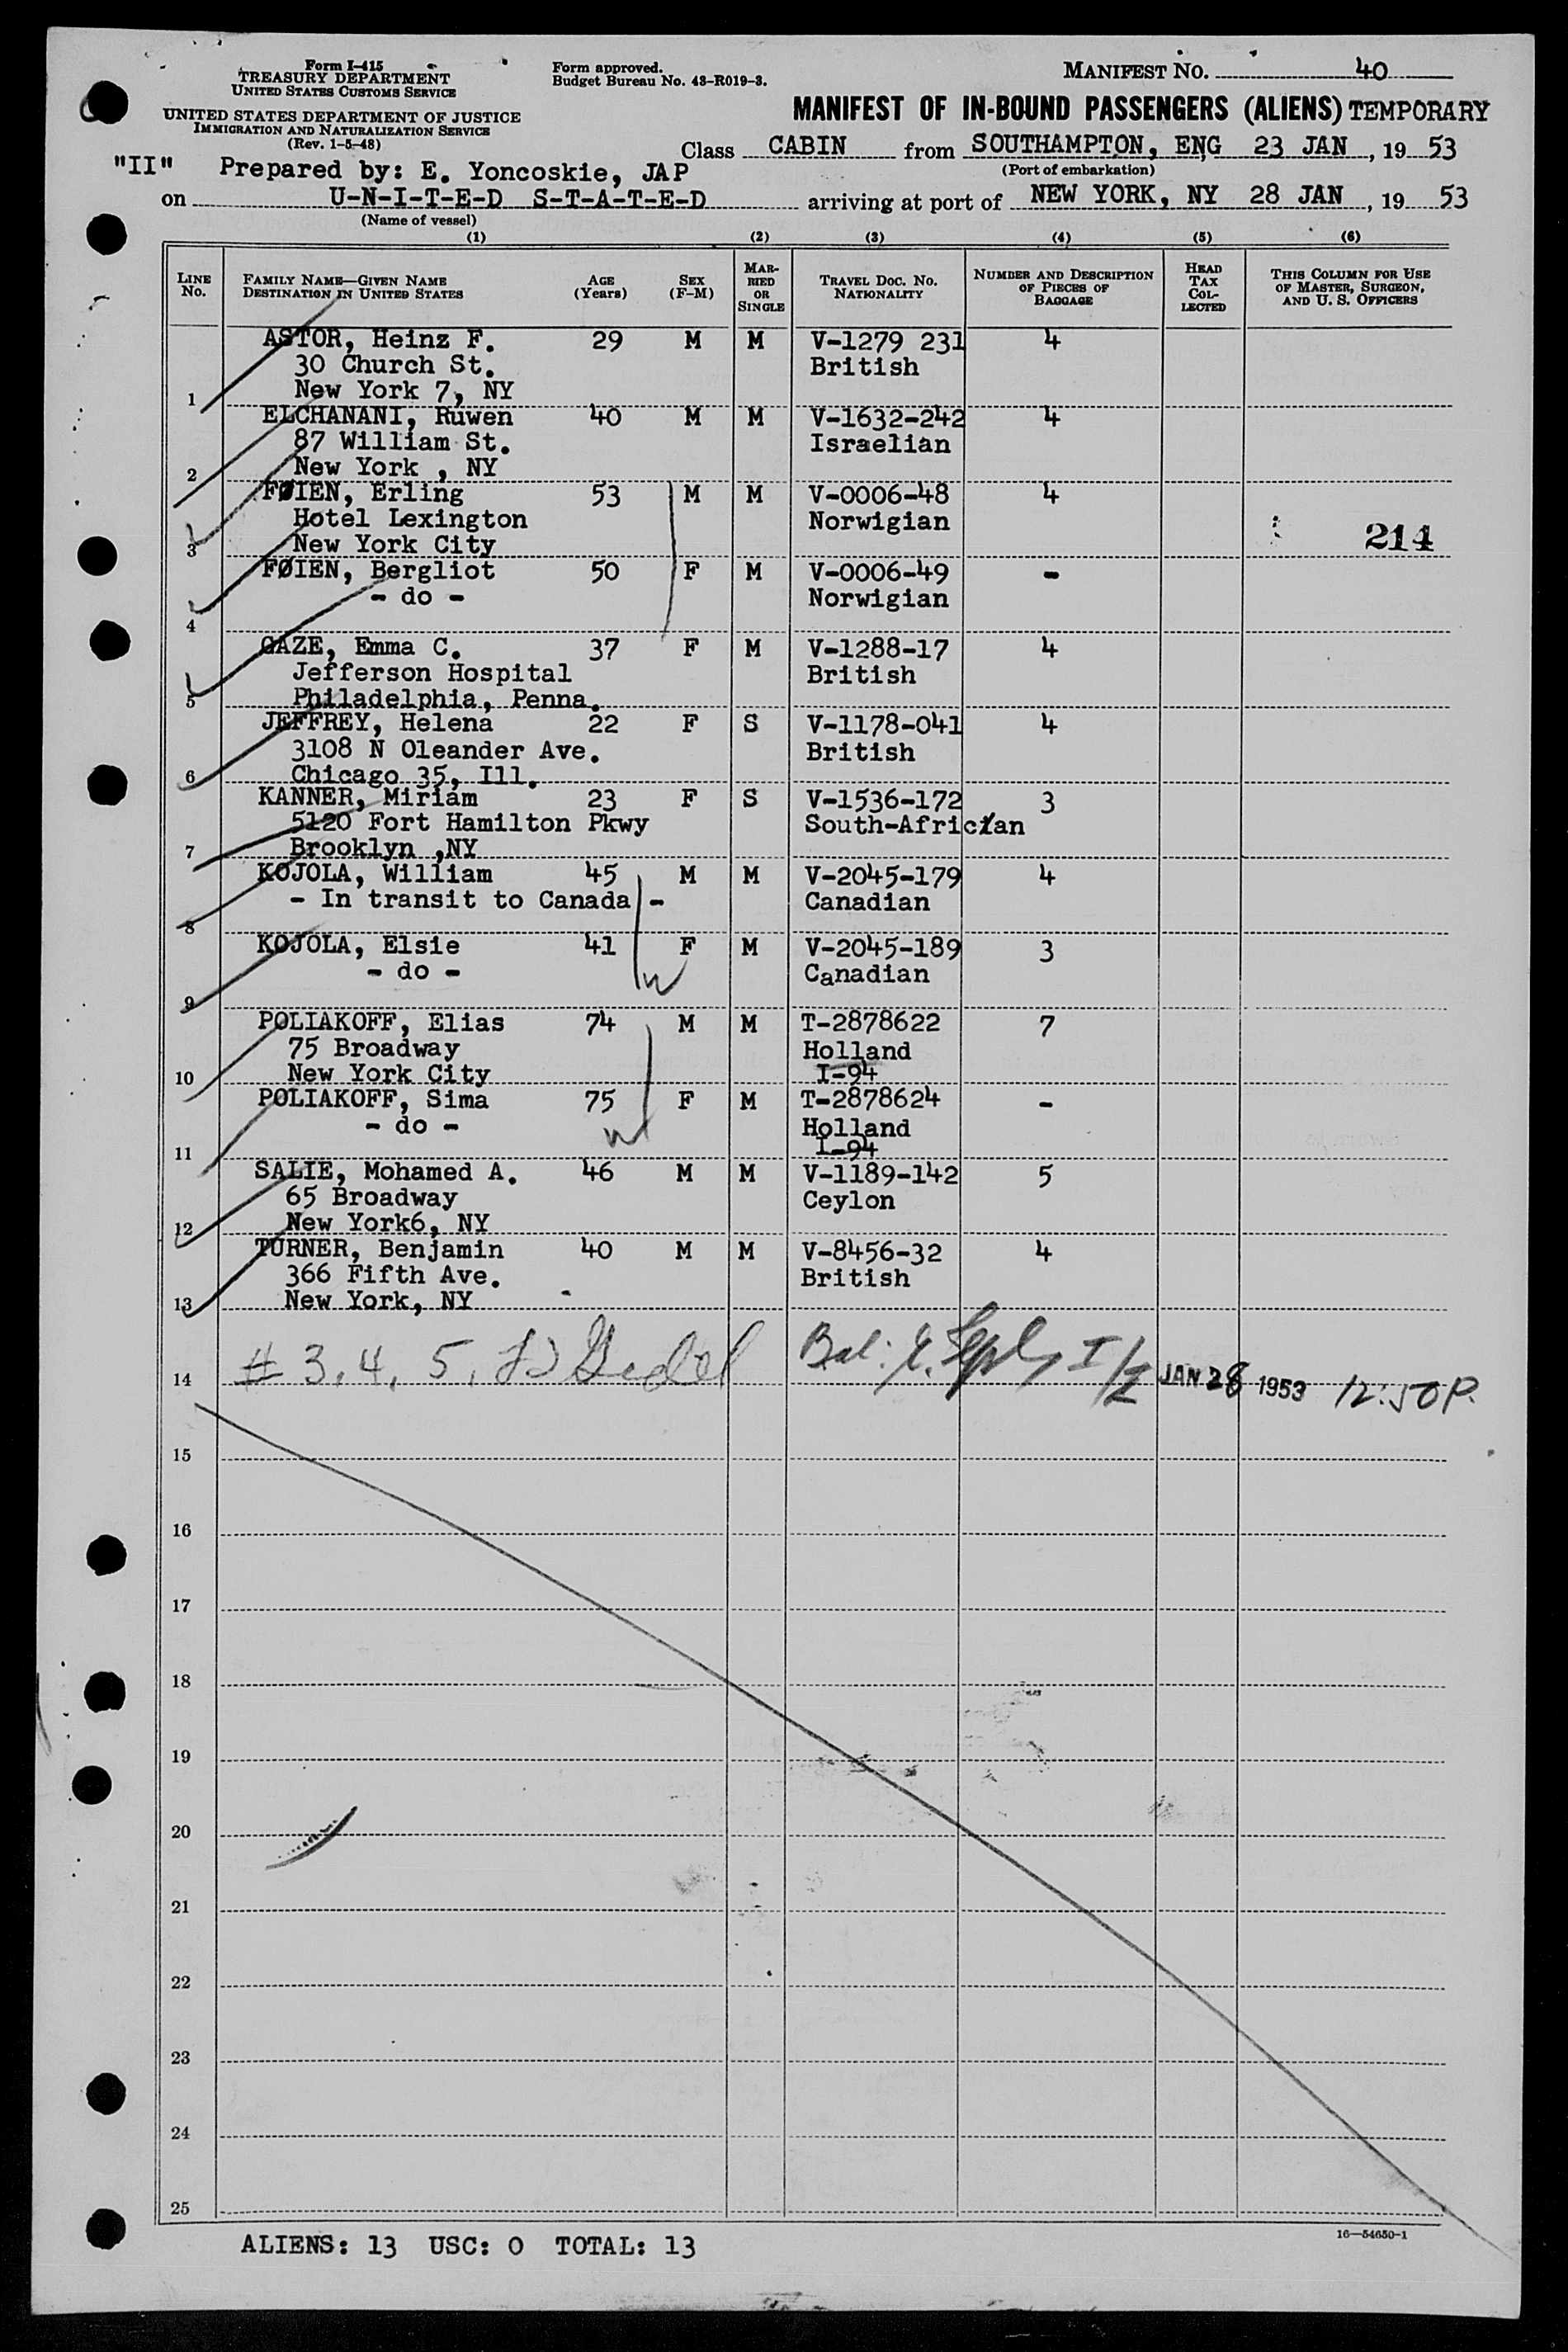 Form I-415
TREASURY DEPARTMENT
UNITED STATES CUSTOMS SERVICE
UNITED STATES DEPARTMENT OF JUSTICE
IMMIGRATION AND NATURALIZATION SERVICE
(Rev. 1-5-48)
Form approved.
Budget Bureau No. 43-R019-3.
MANIFEST No. 40
MANIFEST OF IN-BOUND PASSENGERS (ALIENS) TEMPORARY
Class CABIN from SOUTHAMPTON, ENG 23 JAN, 19 53
(Port of embarkation)
"II" Prepared by: E. Yoncoskie, JAP
on U-N-I-T-E-D S-T-A-T-E-D arriving at port of NEW YORK, NY 28 JAN, 19 53
(Name of vessel)
(1) (2) (3) (4) (5) (6)
LINE No. FAMILY NAME—GIVEN NAME DESTINATION IN UNITED STATES AGE (Years) SEX (F-M) MARRIED OR SINGLE TRAVEL DOC. NO. NATIONALITY NUMBER AND DESCRIPTION OF PIECES OF BAGGAGE HEAD TAX COLLECTED THIS COLUMN FOR USE OF MASTER, SURGEON, AND U. S. OFFICERS
ASTOR, Heinz F. 29 M M V-1279 231 4
30 Church St. British
1 New York 7, NY
ELCHANANI, Ruwen 40 M M V-1632-242 4
87 William St. Israelian
2 New York , NY
FØIEN, Erling 53 M M V-0006-48 4
Hotel Lexington Norwigian 214
3 New York City
FØIEN, Bergliot 50 F M V-0006-49 -
- do - Norwigian
4
GAZE, Emma C. 37 F M V-1288-17 4
Jefferson Hospital British
5 Philadelphia, Penna.
JEFFREY, Helena 22 F S V-1178-041 4
3108 N Oleander Ave. British
6 Chicago 35, Ill.
KANNER, Miriam 23 F S V-1536-172 3
5120 Fort Hamilton Pkwy South-African
7 Brooklyn ,NY
KOJOLA, William 45 M M V-2045-179 4
- In transit to Canada - Canadian
8
KOJOLA, Elsie 41 F M V-2045-189 3
- do - Canadian
9
POLIAKOFF, Elias 74 M M T-2878622 7
75 Broadway Holland
10 New York City I-94
POLIAKOFF, Sima 75 F M T-2878624 -
- do - Holland
11 I-94
SALIE, Mohamed A. 46 M M V-1189-142 5
65 Broadway Ceylon
12 New York6, NY
TURNER, Benjamin 40 M M V-8456-32 4
366 Fifth Ave. British
13 New York, NY
14 # 3, 4, 5, Bal: JAN 28 1953 12:50 P.
15
16
17
18
19
20
21
22
23
24
25
16—54650-1
ALIENS: 13 USC: 0 TOTAL: 13